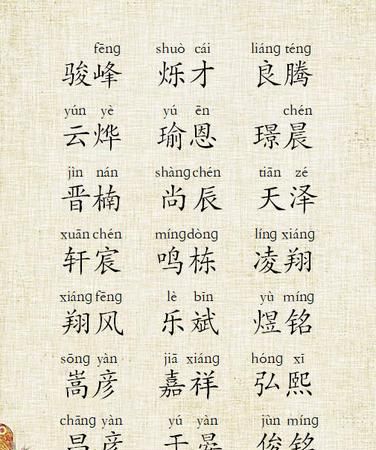 fēng shuò cái liáng téng
骏峰 烁才 良腾
yún yè yú ēn chén
云烨 瑜恩 璟晨
jìn nán shàng chén tiān zé
晋楠 尚辰 天泽
xuān chén míng dòng líng xiáng
轩宸 鸣栋 凌翔
xiáng fēng lè bīn yù míng
翔风 乐斌 煜铭
sōng yàn jiā xiáng hóng xī
嵩彦 嘉祥 弘熙
chāng yàn yú yàn jùn míng
昌彦 于晏 俊铭